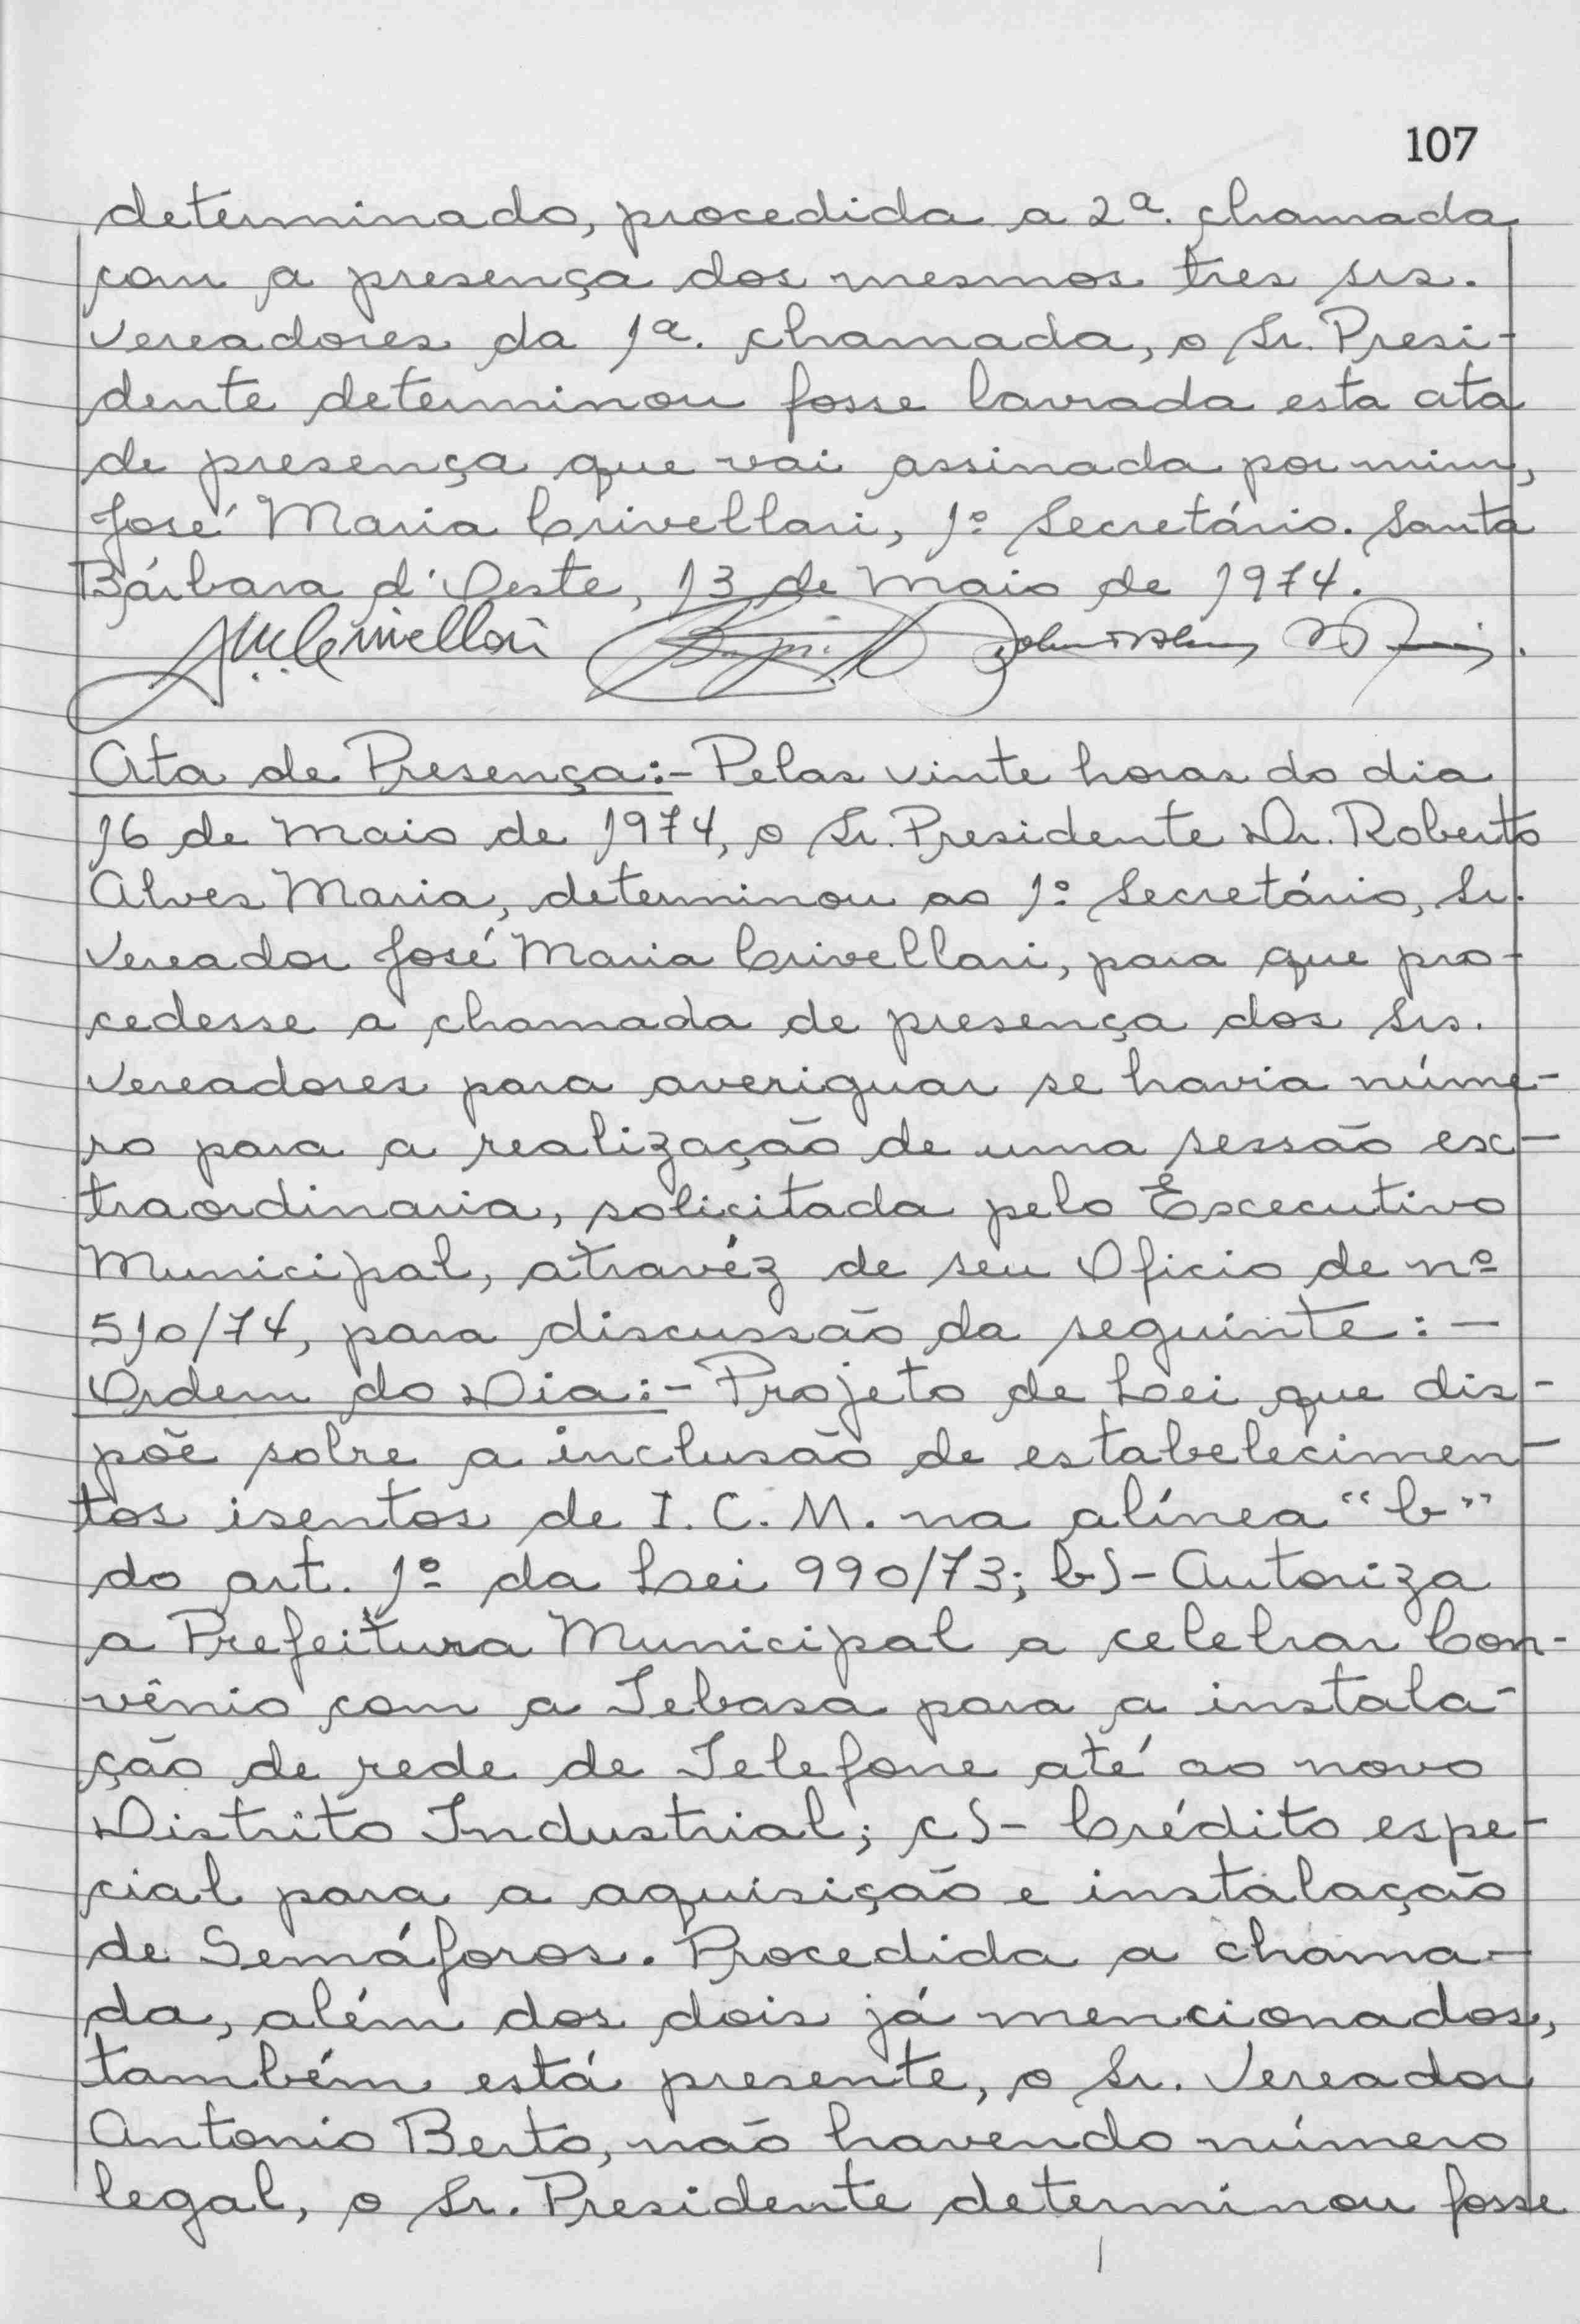 107
determinado, procedida a 2ª. chamada
com a presença dos mesmos tres srs.
Vereadores da 1ª. chamada, o Sr. Presi-
dente determinou fosse lavrada esta ata
de presença que vai assinada por mim,
José Maria Crivellari, 1º Secretário. Santa
Bárbara d'Oeste, 13 de Maio de 1974.
JMCrivellari
Ata de Presença:- Pelas vinte horas do dia
16 de Maio de 1974, o Sr. Presidente Dr. Roberto
Alves Maria, determinou ao 1º Secretário, Sr.
Vereador José Maria Crivellari, para que pro-
cedesse a chamada de presença dos Srs.
Vereadores para averiguar se havia núme-
ro para a realização de uma sessão ex-
traordinaria, solicitada pelo Executivo
Municipal, atravéz de seu Oficio de nº
510/74, para discussão da seguinte:-
Ordem do Dia:- Projeto de Lei que dis-
põe sobre a inclusão de estabelecimen-
tos isentos de I.C.M. na alínea "b"
do art. 1º da Lei 990/73; b)- Autoriza
a Prefeitura Municipal a celebrar Con-
vênio com a Tebasa para a instala-
ção de rede de Telefone até ao novo
Distrito Industrial; c)- Crédito espe-
cial para a aquisição e instalação
de Semáforos. Procedida a chama-
da, além dos dois já mencionados,
também está presente, o Sr. Vereador
Antonio Berto, não havendo número
legal, o Sr. Presidente determinou fosse